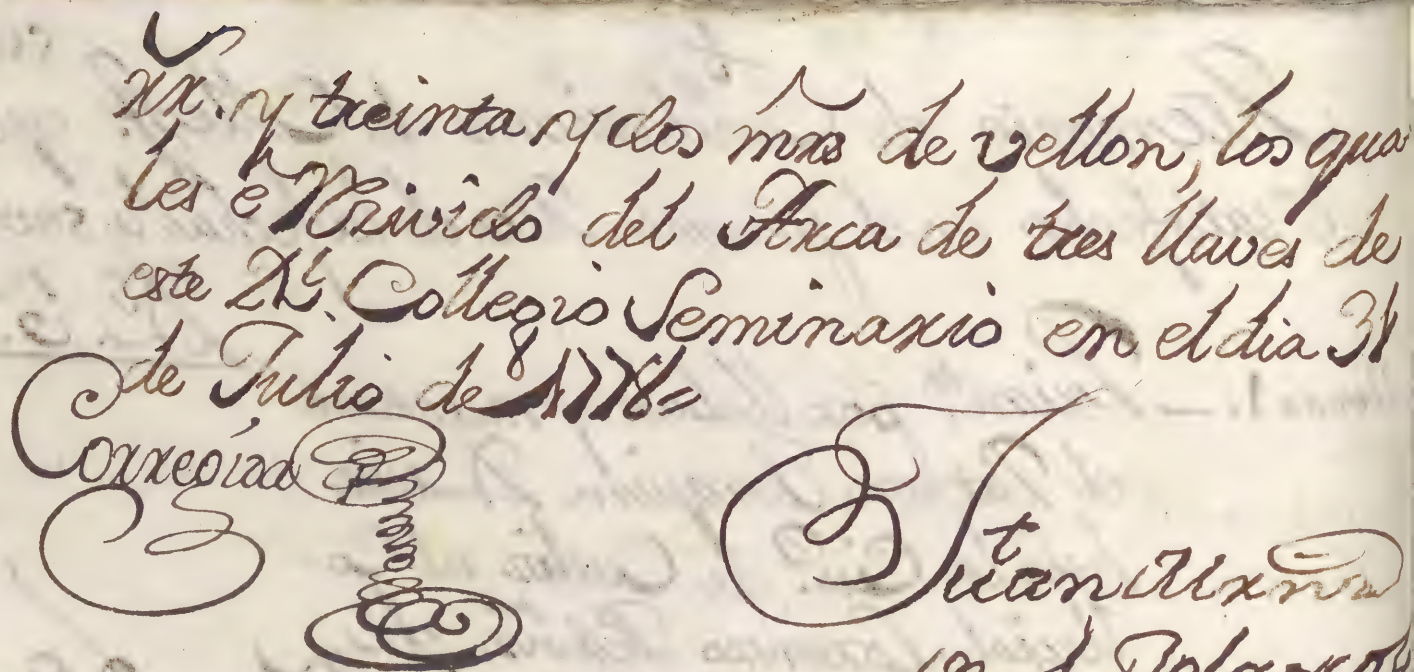 rr. y treinta y dos mrs de vellon, los qua
les é Rezivido del Arca de tres llaves de
este Rl. Collegio Seminario en el dia 31
de Julio de 1778=
Correoina
Juan